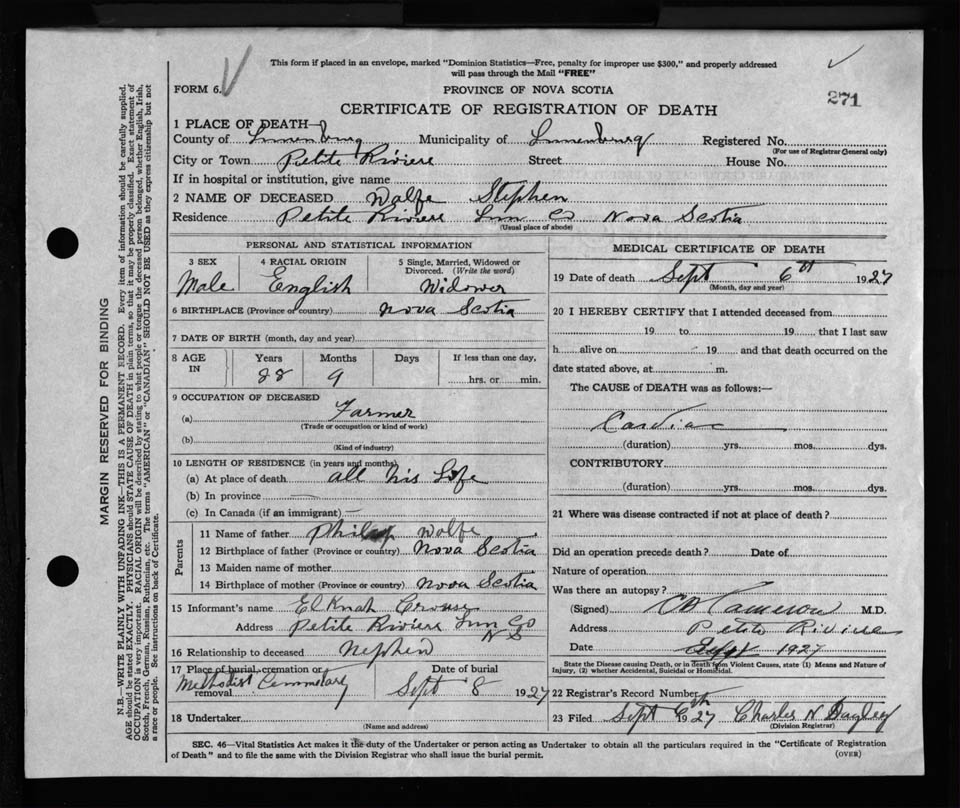 This form if placed in an envelope, marked "Dominion Statistics—Free, penalty for improper use $300," and properly addressed
will pass through the Mail "FREE"
FORM 6.
PROVINCE OF NOVA SCOTIA
271
CERTIFICATE OF REGISTRATION OF DEATH
1 PLACE OF DEATH—
County of Lunenburg Municipality of Lunenburg Registered No.
(For use of Registrar General only)
City or Town Petite Riviere Street House No.
If in hospital or institution, give name
2 NAME OF DECEASED Wolfe Stephen
Residence Petite Riviere Lun Co Nova Scotia
(Usual place of abode)
PERSONAL AND STATISTICAL INFORMATION
3 SEX 4 RACIAL ORIGIN 5 Single, Married, Widowed or Divorced. (Write the word)
Male English Widower
6 BIRTHPLACE (Province or country) Nova Scotia
7 DATE OF BIRTH (month, day and year)
8 AGE IN Years Months Days If less than one day,
88 9 hrs. or min.
9 OCCUPATION OF DECEASED
(a) Farmer
(Trade or occupation or kind of work)
(b)
(Kind of industry)
10 LENGTH OF RESIDENCE (in years and months)
(a) At place of death all his Life
(b) In province
(c) In Canada (if an immigrant)
Parents
11 Name of father Philip Wolfe
12 Birthplace of father (Province or country) Nova Scotia
13 Maiden name of mother
14 Birthplace of mother (Province or country) Nova Scotia
15 Informant's name Elknah Crouse
Address Petite Riviere Lun Co
N S
16 Relationship to deceased Nephen
17 Place of burial, cremation or removal Date of burial
Methodist Cemmetary Sept 8 1927
18 Undertaker
(Name and address)
MEDICAL CERTIFICATE OF DEATH
19 Date of death Sept 6th 1927
(Month, day and year)
20 I HEREBY CERTIFY that I attended deceased from
19 to 19 that I last saw
h alive on 19 and that death occurred on the
date stated above, at m.
The CAUSE of DEATH was as follows:
Cardiac
(duration) yrs. mos. dys.
CONTRIBUTORY
(duration) yrs. mos. dys.
21 Where was disease contracted if not at place of death?
Did an operation precede death? Date of
Nature of operation
Was there an autopsy?
(Signed) Cameron M.D.
Address Petite Riviere
Date Sept 1927
State the Disease causing Death, or in death from Violent Causes, state (1) Means and Nature of
Injury, (2) whether Accidental, Suicidal or Homicidal.
22 Registrar's Record Number
23 Filed Sept 6th 1927 Charles N
(Division Registrar)
SEC. 46—Vital Statistics Act makes it the duty of the Undertaker or person acting as Undertaker to obtain all the particulars required in the "Certificate of Registration
of Death" and to file the same with the Division Registrar who shall issue the burial permit.
(OVER)
MARGIN RESERVED FOR BINDING
N.B.—WRITE PLAINLY WITH UNFADING INK—THIS IS A PERMANENT RECORD. Every item of information should be carefully supplied.
AGE should be stated EXACTLY. PHYSICIANS should STATE CAUSE OF DEATH in plain terms, so that it may be properly classified. Exact statement of
OCCUPATION is very important. RACIAL ORIGIN will be described by stating to what people or tongue the deceased person belonged, whether English, Irish,
Scotch, French, German, Russian, Ruthenian, etc. The terms "AMERICAN" or "CANADIAN" SHOULD NOT BE USED as they express citizenship but not
a race or people. See instructions on back of Certificate.